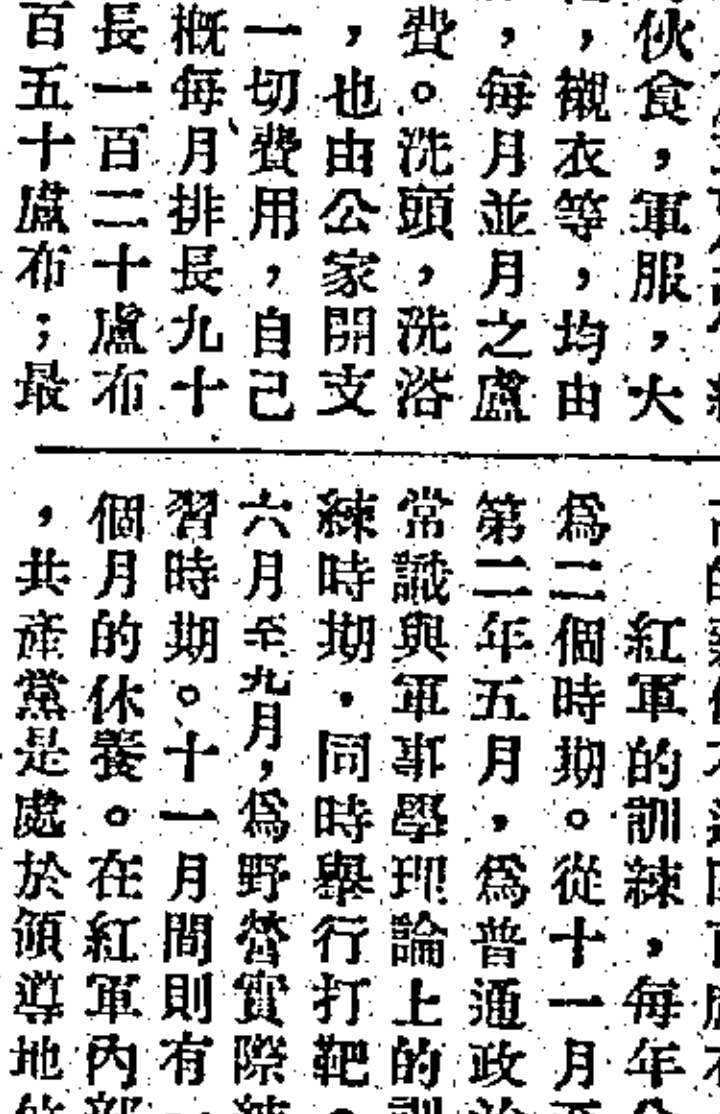 伙食，軍服，大
，襯衣等，均由
，每月並月之盧
費。洗頭，洗浴
，也由公家開支
一切費用，自己
概每月排長九十
長一百二十盧布
百五十盧布；最
紅軍的訓練，每年
為二個時期。從十一月
第二年五月，為普通政治
常識與軍事學理論上的訓
練時期．同時舉行打靶。
六月至九月，為野營實際練
習時期。十一月間則有一
個月的休養。在紅軍內部
，共產黨是處於領導地位